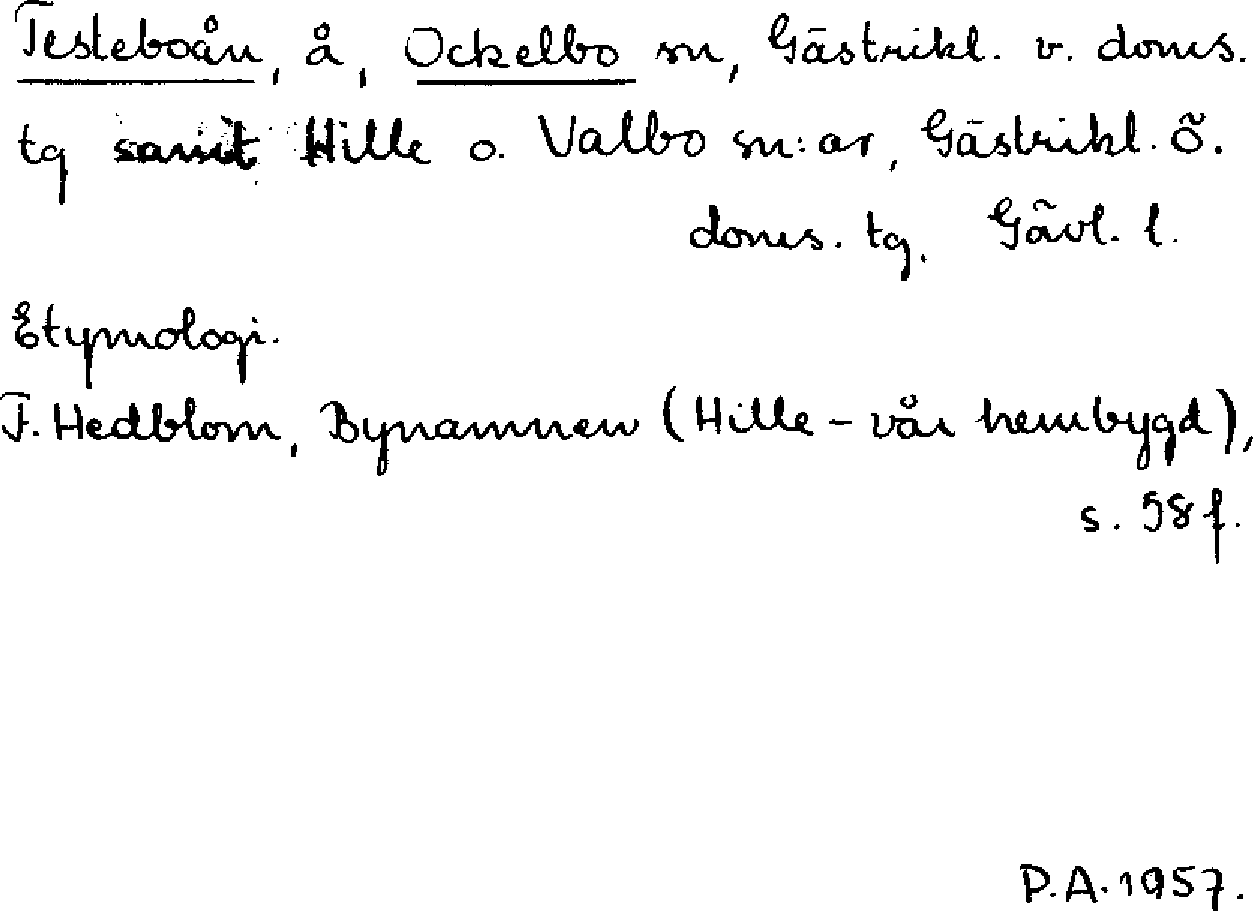 Testeboån, å, Ockelbo sn, Gästrikl. v. doms.
tg samt Hille o. Valbo sn:ar, Gästrikl. ö.
doms. tg. Gävl. l.
Etymologi.
F. Hedblom, Bynamnen (Hille - vår hembygd),
s. 58 f.
P.A. 1957.